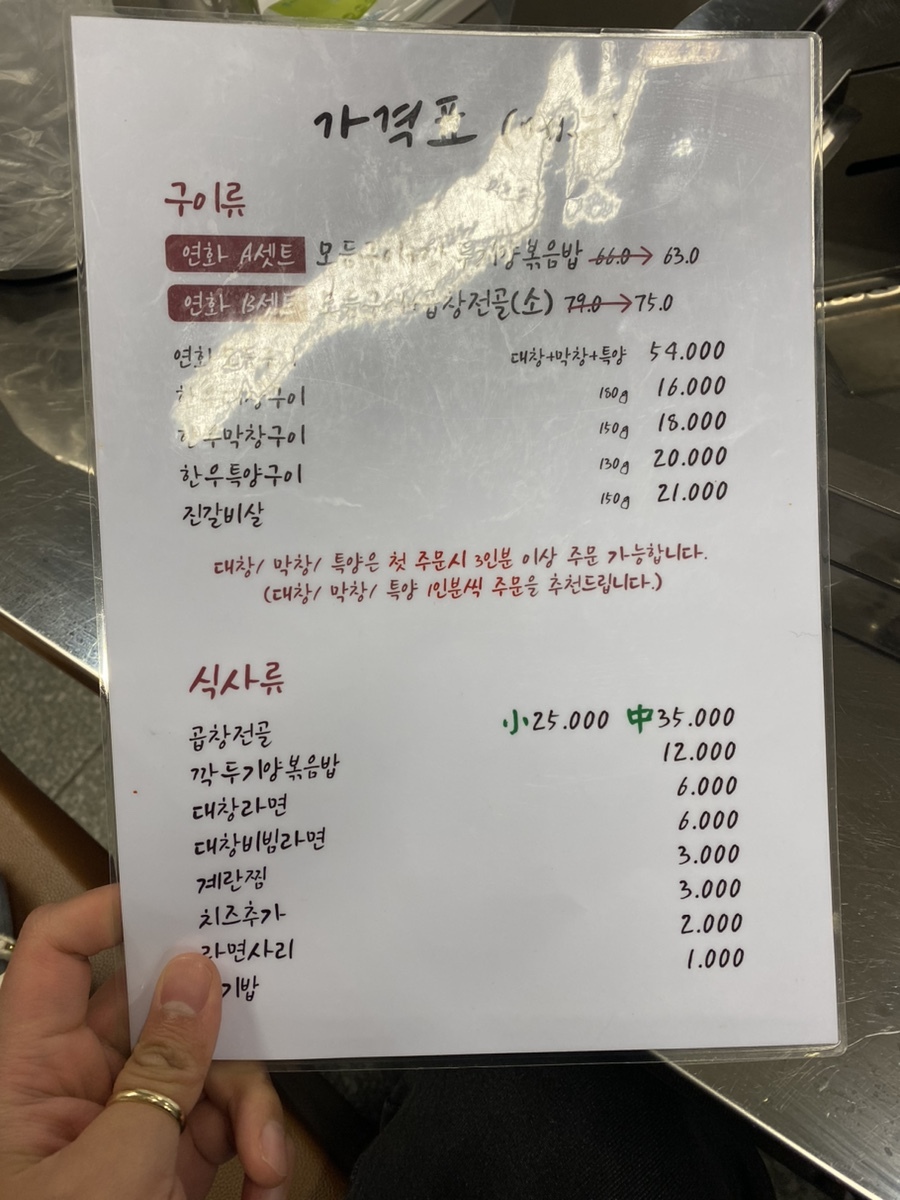 가격표
구이류
연화 A세트 모듬구이 깍두기양볶음밥 66.0→ 63.0
연화 B세트 곱창전골(소) 79.0→75.0
연화 모듬구이 대창+막창+특양 54.000
한우대창구이 180g 16.000
한우막창구이 150g 18.000
한우특양구이 130g 20.000
진갈비살 150g 21.000
대창/ 막창/ 특양은 첫 주문시 3인분 이상 주문 가능합니다.
(대창/ 막창/ 특양 1인분씩 주문을 추천드립니다.)
식사류
곱창전골 小25.000 中35.000
깍두기양볶음밥 12.000
대창라면 6.000
대창비빔라면 6.000
계란찜 3.000
치즈추가 3.000
라면사리 2.000
기밥 1.000